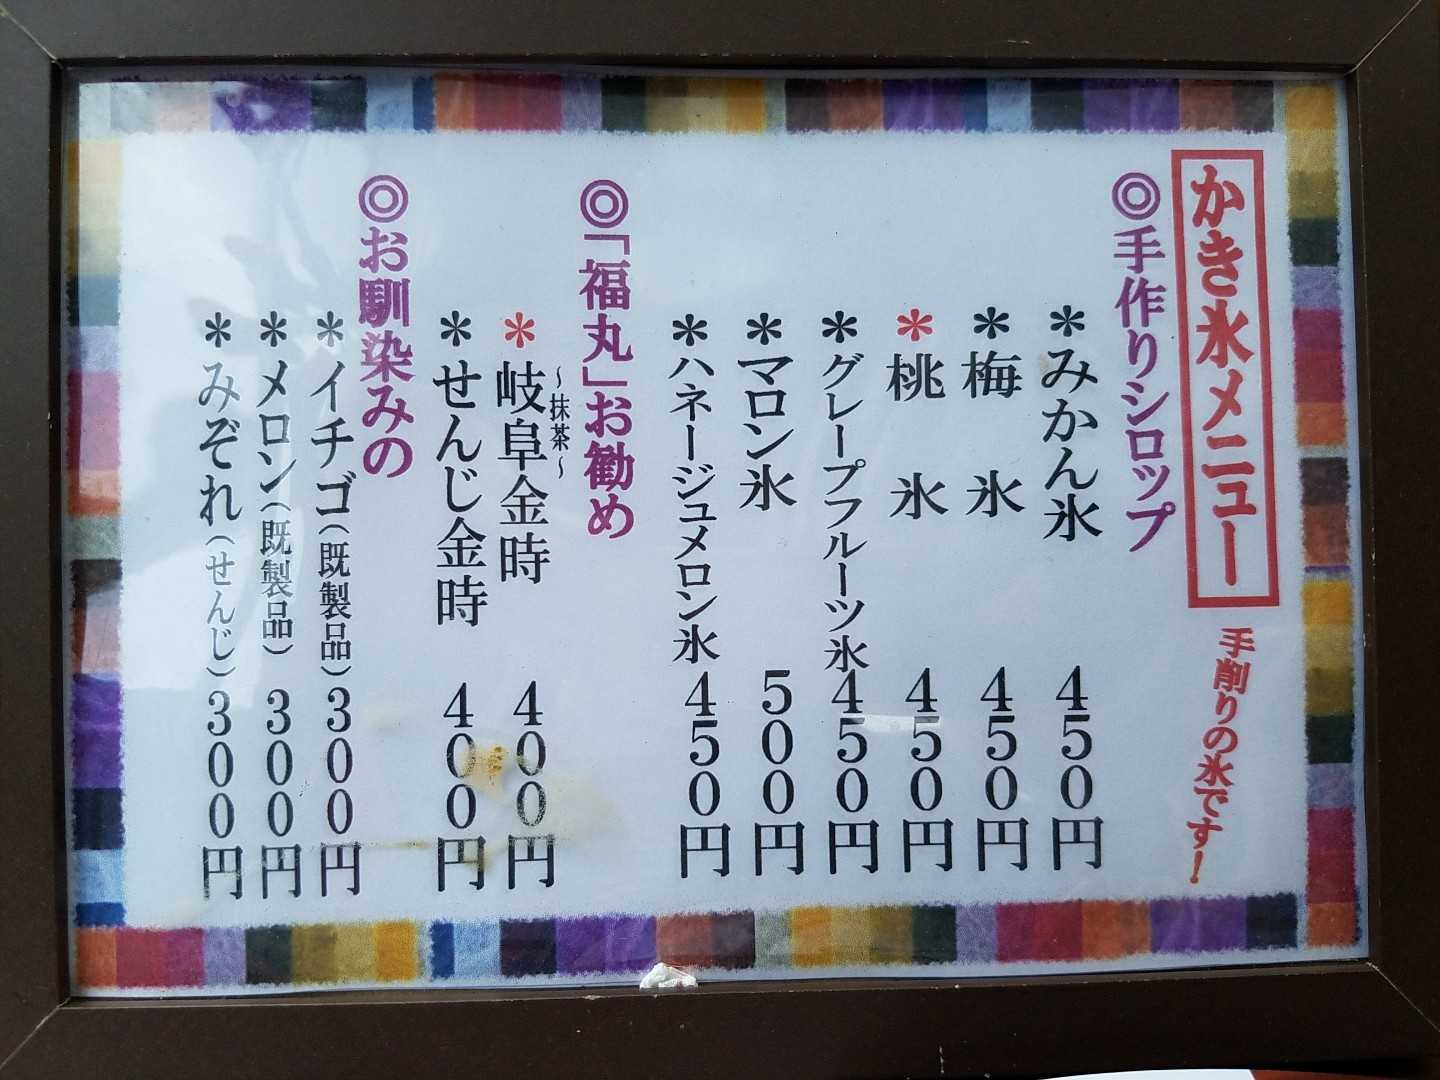 かき氷メニュー
手削りの氷です!
◎手作りシロップ
*みかん氷 450円
*梅 氷 450円
*桃 氷 450円
*グレープフルーツ氷 450円
*マロン氷 500円
*ハネージュメロン氷 450円
◎「福丸」お勧め
~抹茶~
*岐阜金時 400円
*せんじ金時 400円
◎お馴染みの
*イチゴ(既製品)300円
*メロン(既製品)300円
*みぞれ(せんじ)300円